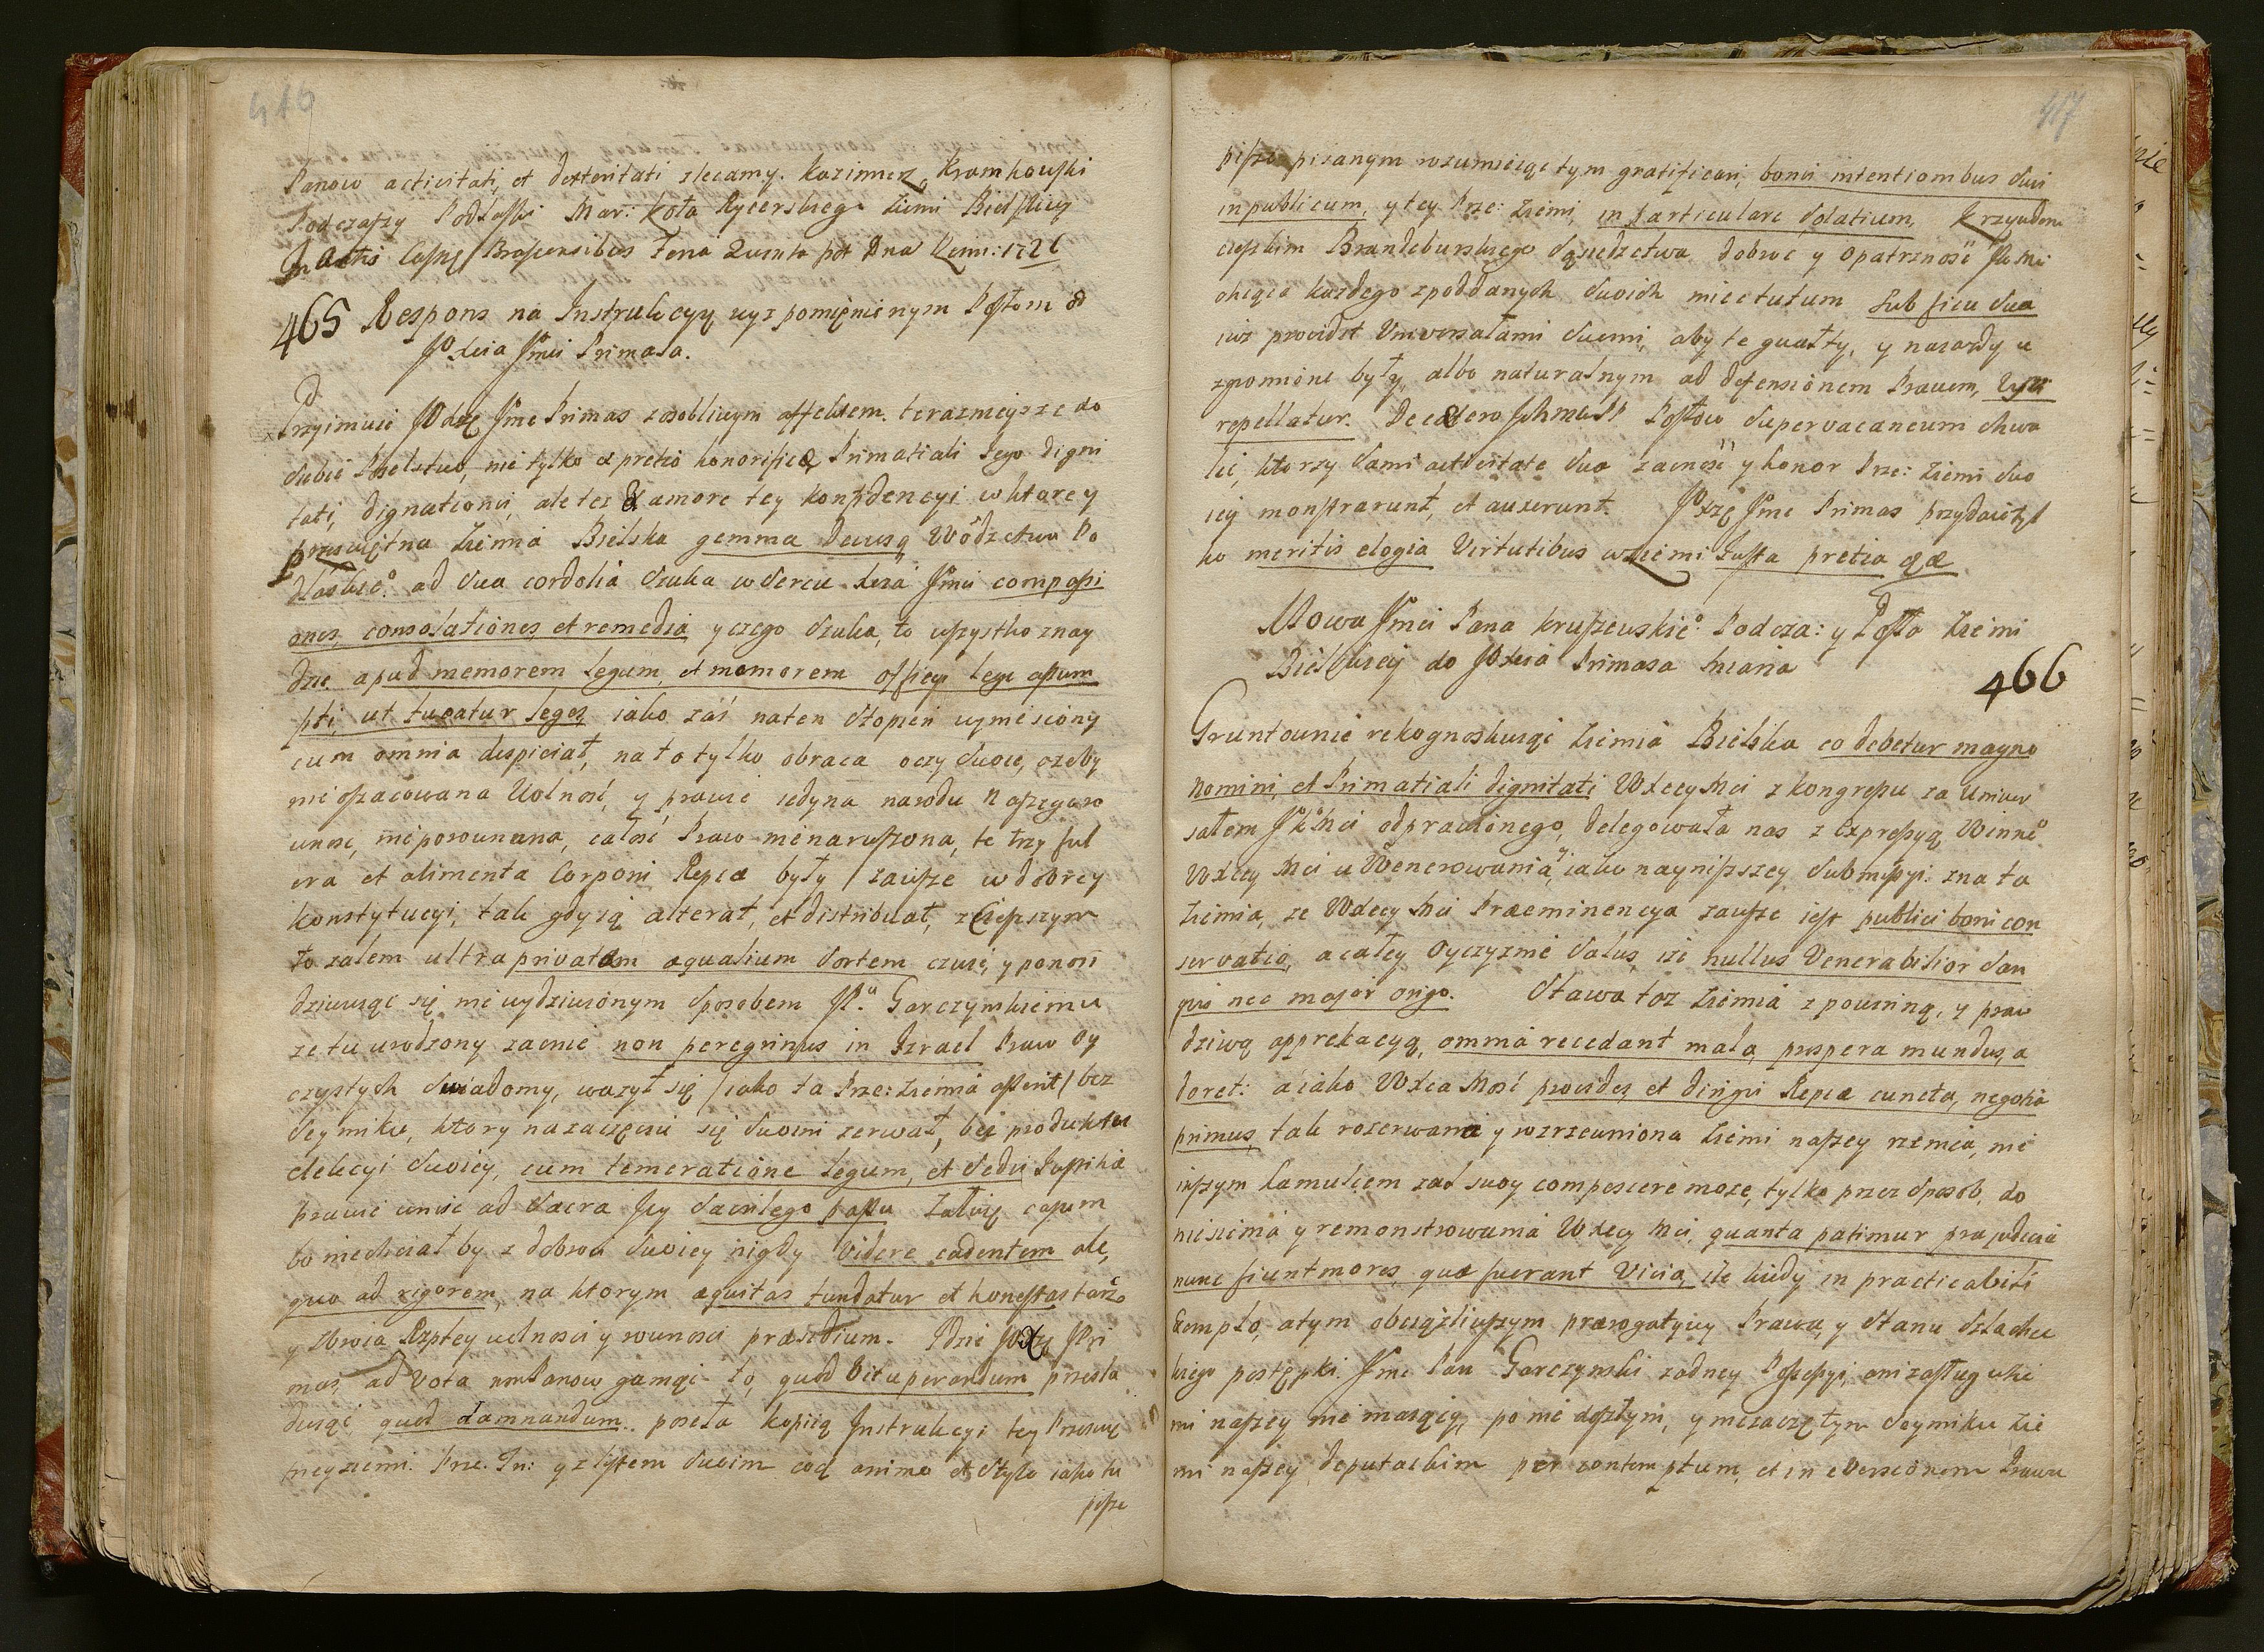 416
Panow activitati, et dexteritati zlecamy. Kazimierz Kramkowski
Podczaszy Podlaski Mar: Koła Rycerskiego Ziemi Bielskiey
In Actis Castris Brascensibus Feria Quinta pst Dna Remi: 1726
465 Respons na Instrukcyą wyz pomięnionym Posłom od
JO Xcia Jmci Primasa.
Przyimuie JO Xże Jmc Primas z osobliwym affektem terazniejsze do
siebie Poselstwo, nie tylko a pretio honorifico Primatiali Iego digni
tati, dignationis, ale tez Ex amore tey konfidencyi w ktorey
przeswiętna Ziemia Bielska gemma Decusq Wodzctwa Po
dlaskieo ad sua cordolia szuka w sercu Xcia Jmci composi
ones, consolationes, et remedia y czego szuka, to wszystko znay
dzie apud memorem legum, et memorem officy lege assum
pti, ut tueatur leges iako zas na ten stopien wyniesiony
cum omnia despiciat, na to tylko obraca oczy swoie, azeby
nieoszacowana Wolnosc, y prawie iedyna narodu naszego ro
wnosc, nieporownana, całosc Praw nienaruszona, te trzy ful
cra et alimenta Corporis Repcæ były zawsze w dobrey
konstytucyi, tak gdy ią alterat, et distribuat, z Ciepszym
to zalem ultra privatam æqualium sortem czuie, y ponosi
dziwuiąc się nie wydziwionym sposobem JP. Garczynskiemu
ze tu urodzony zacnie non peregrinus in Israel Praw Oy
czystych swiadomy, wazył się /iako ta Prze: Ziemia asserit/ bez
Seymiku, ktory na zaczęciu się swoim zerwał, bez produktu
elekcyi swoiey, cum temeratione legum, et sedis Justitiæ
prawie wnisc ad sacra Jey sacrilego passu Załuię casum
bo niechciał by z dobroci swoiey nigdy Videre cadentem ale,
quo ad rigorem, na ktorym æquitas fundatur et honestas
y zbroia Rzptey wolnosci y rownosci præsidium. Jdzie JO Xże Pri
mas, ad Vota mPanow ganiąc to, quod Vituperandum przesla
duiąc, quod damnandum posela kopiią Instrukcyi tey Przeswię
tney ziemi Prze. Tr: y z listem swoim eoq animo et stylo iako tu
pisze
417
pisze pisanym rozumieiąc tym gratificari, bonis intentionibus sui
in publicum, y tey Prze: Ziemi, in particulare solatium, krzywdom
cięszkim Brandeburskiego sąsiedztwa, dobroć y Opatrznosć
chcąca kazdego z poddanych swoich miec tutum sub ficu sua
iuz providit Uniwersałami swemi, aby te gwałty, y naiazdy u
zgromione były, albo naturalnym ad defensionem Prawem, Vis vi
repellatur. De cætero Ichmciw PP Posłow supervacaneum chwa
lić, ktorzy sami activitate sua zacnosc y honor Prze: Ziemi swo
iey monstrarunt, et auxerunt. JO Xże Jmc Primas przydaie tyl
ko meritis elogia Virtutibus w Ziemi Justa pretia
Mowa Jmci Pana Kruszewskieo Podcza: y Posła Ziemi
Bielskiey do JO Xcia Primasa miana
466
Gruntownie rekognoskuiąc Ziemia Bielska co debetur magno
nomini, et Primatiali dignitati WXcey Mci z kongressu za Uniwer
sałem JKMci odprawionego, delegowała nas z Expressyą Winneo
WXcey Mci u Wenerowania, y iako naynizszey submissyi. zna ta
Ziemia, ze WXcey Mci Præeminencya zawsze iest publici boni con
servatio, a całey Oyczyznie salus, ize nullus Venerabilior san
guis nec major origo. Stawa toz Ziemia z powinną, y praw
dziwą apprekacyą, omnia recedant mala, prospera mundus, a
doret: a iako WXca Mosc provides et dirigis Repcæ cuncta, negotia
primus, tak rozerwana y rozrzewniona Ziemi naszey rzenica, nie
inszym hamulcem zal swoy compescere moze, tylko przez sposob, do
niesienia y remonstrowania WXcey Mci, quanta patimur præjudicia
nunc fiunt mores, quæ fuerant Vicia, ile kiedy in practicabili
Exemplo, a tym obciążliwszym prærogatywy Prawa, y Stanu szlachec
kiego postępki. Jmc Pan Garczynski zadney Possessyi, ani zasług w Zie
mi naszey nie maiący, po nie doszłym, y niezaczętym Seymiku Zie
mi naszey, deputackim per contemptum, et in eversionem Prawa